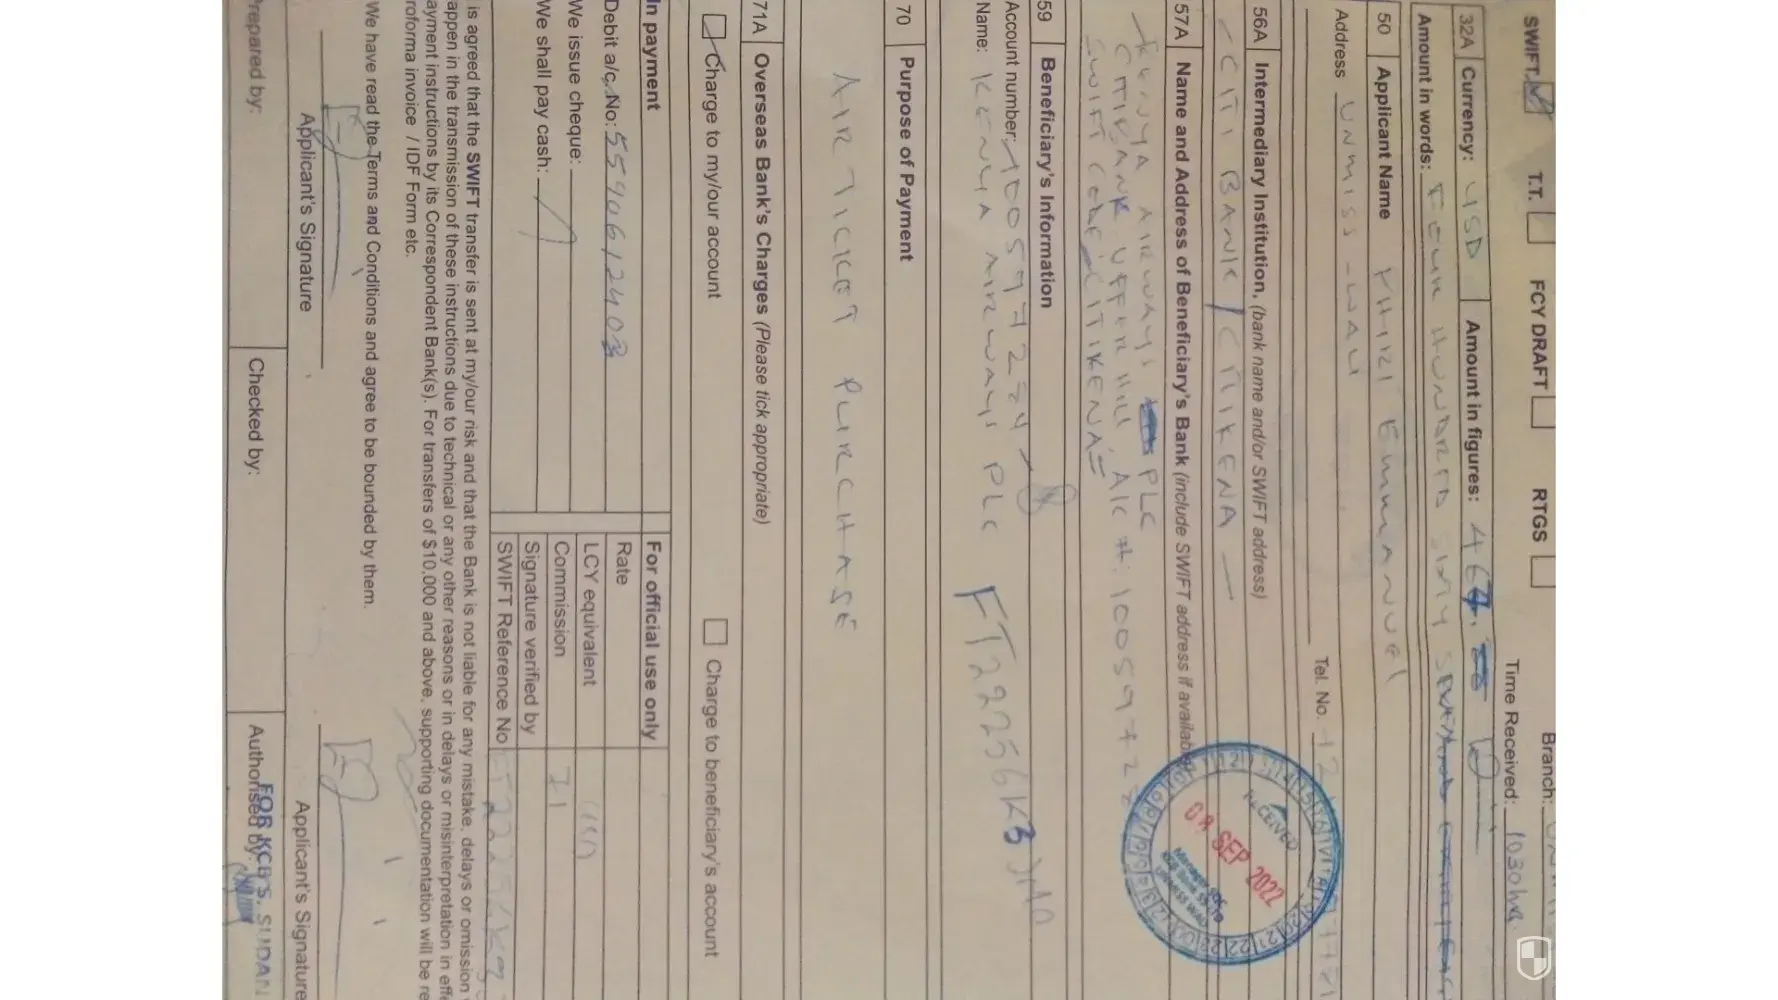 SWIFT T.T. FCY DRAFT RTGS Branch:
Time Received: 1030hrs
32A Currency: USD Amount in figures: 464.
Amount in words: FOUR HUNDRED SIXTY
50 Applicant Name PHIRI EMMANUEL
Address UNMISS - WAU Tel. No.
56A Intermediary Institution, (bank name and/or SWIFT address)
CITI BANK / CITIKENA
57A Name and Address of Beneficiary's Bank (include SWIFT address if available
KENYA AIRWAYS PLC
CITIBANK UPPER HILL, A/C #: 100597
SWIFT CODE: CITIKENA
59 Beneficiary's Information
Account number:
Name: KENYA AIRWAYS PLC
FT22256K3
70 Purpose of Payment
AIR TICKET PURCHASE
71A Overseas Bank's Charges (Please tick appropriate)
Charge to my/our account Charge to beneficiary's account
In payment For official use only
Debit a/c. No: 5590612403 Rate
We issue cheque: LCY equivalent
We shall pay cash: Commission
Signature verified by
SWIFT Reference No
is agreed that the SWIFT transfer is sent at my/our risk and that the Bank is not liable for any mistake, delays or omission
appen in the transmission of these instructions due to technical or any other reasons or in delays or misinterpretation in effe
ayment instructions by its Correspondent Bank(s). For transfers of $10,000 and above, supporting documentation will be re
roforma invoice / IDF Form etc.
We have read the Terms and Conditions and agree to be bounded by them.
Applicant's Signature Applicant's Signature
Prepared by: Checked by: Authorised by:
FOR KCB S. SUDAN
RECEIVED
08 SEP 2022